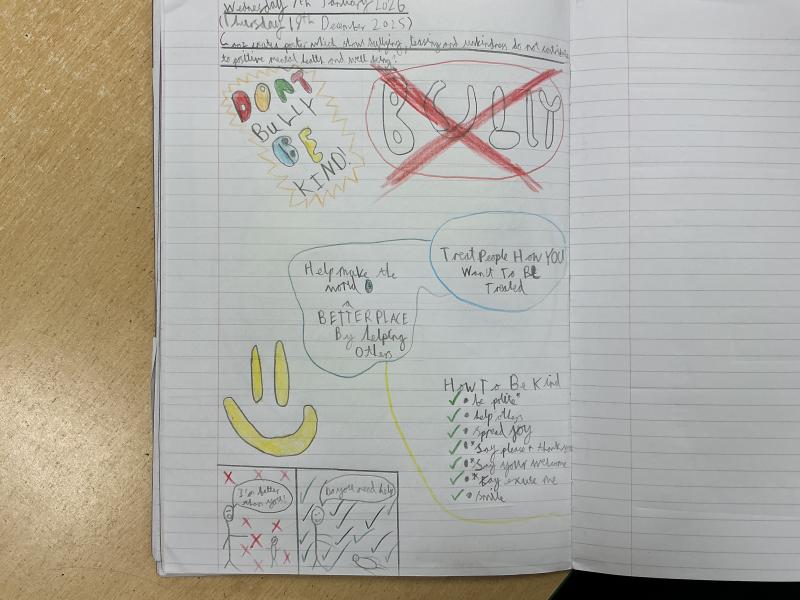 Wednesday 7th January 2026
(Thursday 18th December 2025)
Can I create poster which show bullying, teasing and unkindness do not contribute
to positive mental health and well being?
DONT
BULLY
BE
KIND!
BULLY
Treat People How YOU
Want To BE
Treated
Help make the
world
A
BETTER PLACE
By helping
Others
How To Be Kind
be polite*
help others
spread joy
*Say please + thank you
*Say your welcome
*Say excuse me
smile
I'm better
than you!
Do you need help